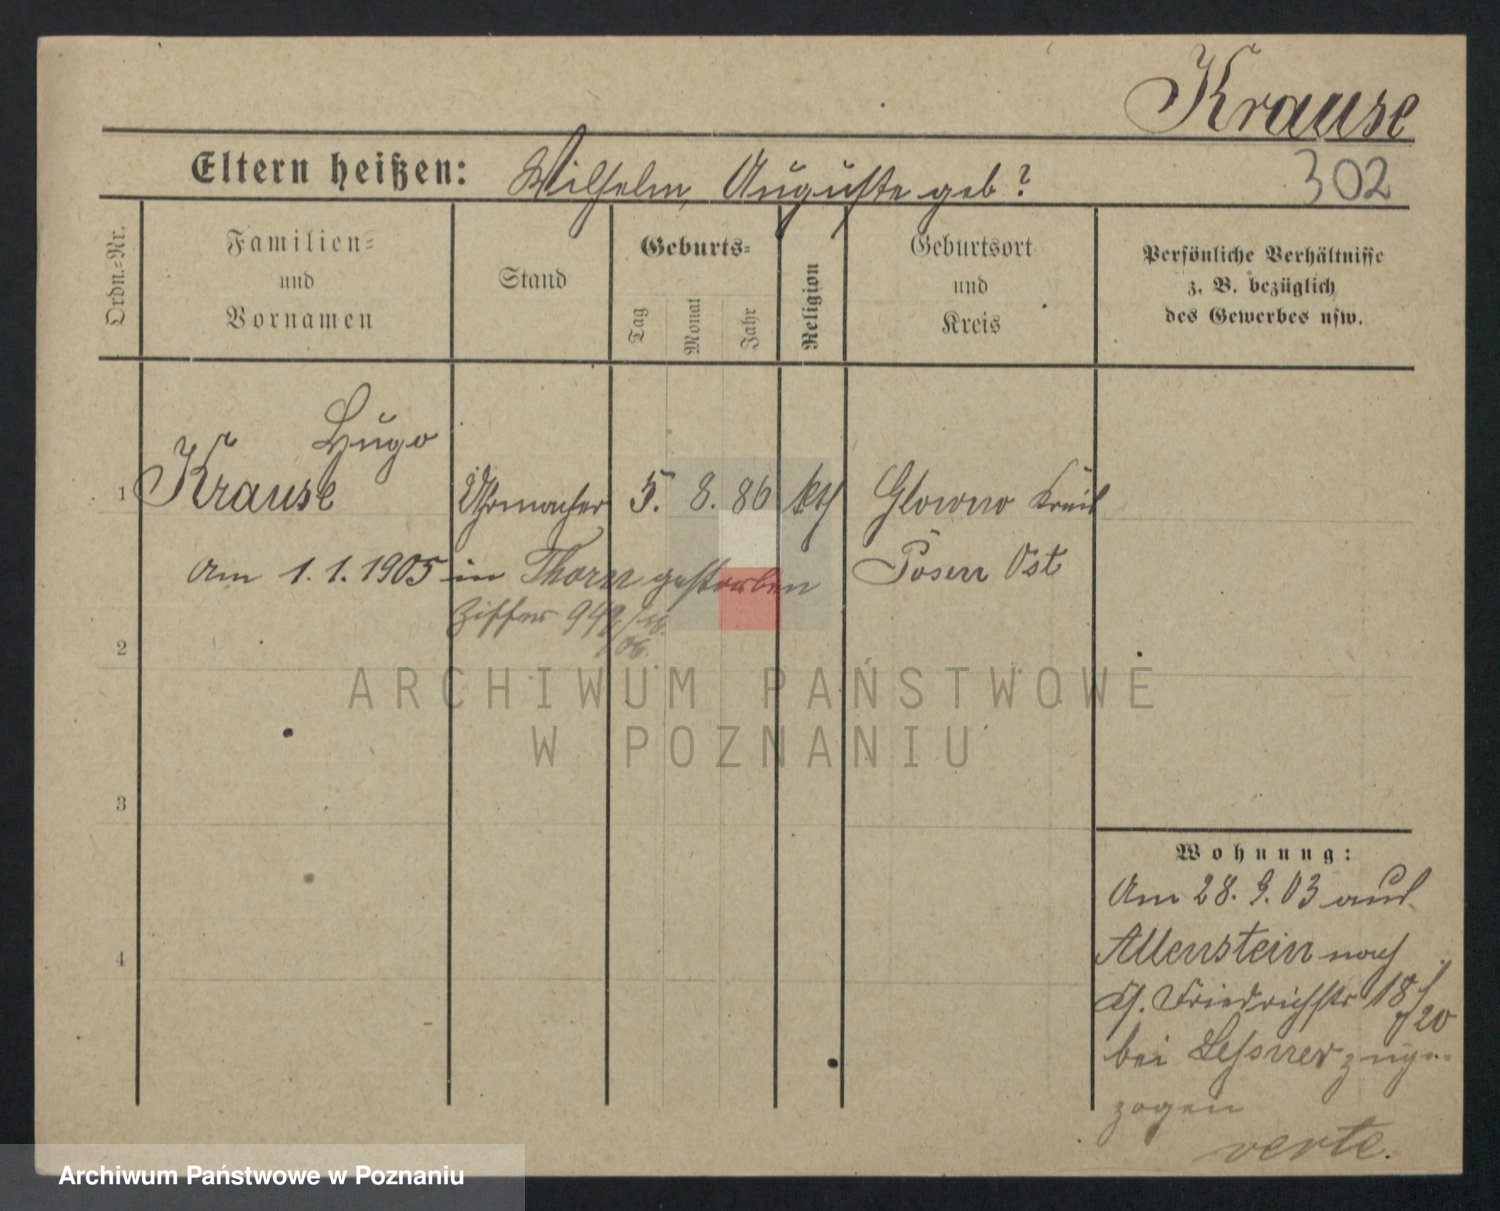 Krause
Eltern heißen: Wilhelm, Auguste geb?
302
Ordn.-Nr.
Familien-
und
Vornamen
Stand
Geburts-
Tag
Monat
Jahr
Religion
Geburtsort
und
Kreis
Persönliche Verhältnisse
z. B. bezüglich
des Gewerbes usw.
Hugo
1 Krause Uhrmacher 5. 8. 86 kth Glowno Kreis
Am 1.1.1905 in Thorn gestorben Posen Ost
Ziffer
2
ARCHIWUM PAŃSTWOWE
W POZNANIU
3
Wohnung:
Am 28. 9. 03 aus
Allenstein nach
4
Friedrichstr 18/20
bei Lessner zuge-
zogen
verte.
Archiwum Państwowe w Poznaniu